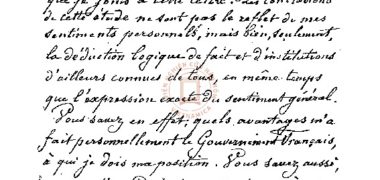 que je joins à cette lettre. Les conclusions
de cette étude ne sont pas le reflet de mes
sentiments personnels, mais bien, seulement,
la déduction logique de fait et d'institutions
d'ailleurs connues de tous, en même temps
que l'expression exacte du sentiment général.
Vous savez en effet, quels avantages m'a
fait personnellement le Gouvernement Français,
à qui je dois ma position. Vous savez aussi,